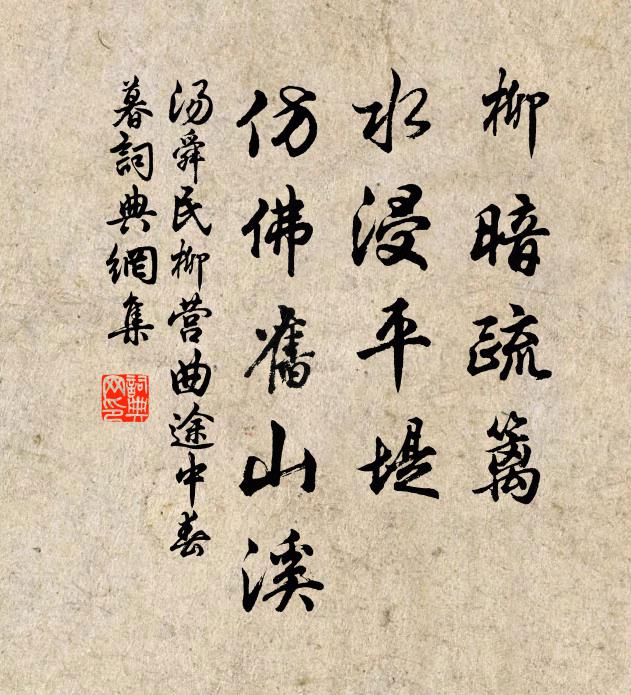 柳暗疏篱
水浸平堤
仿佛舊山溪
汤舜民柳营曲途中春
暮詞典網集
詞典网印